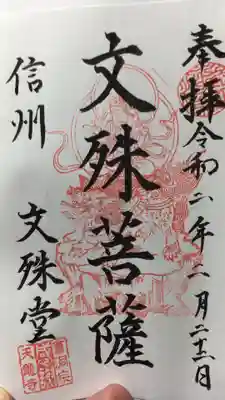 奉拝 令和六年二月二十二日
文殊菩薩
信州 文殊堂